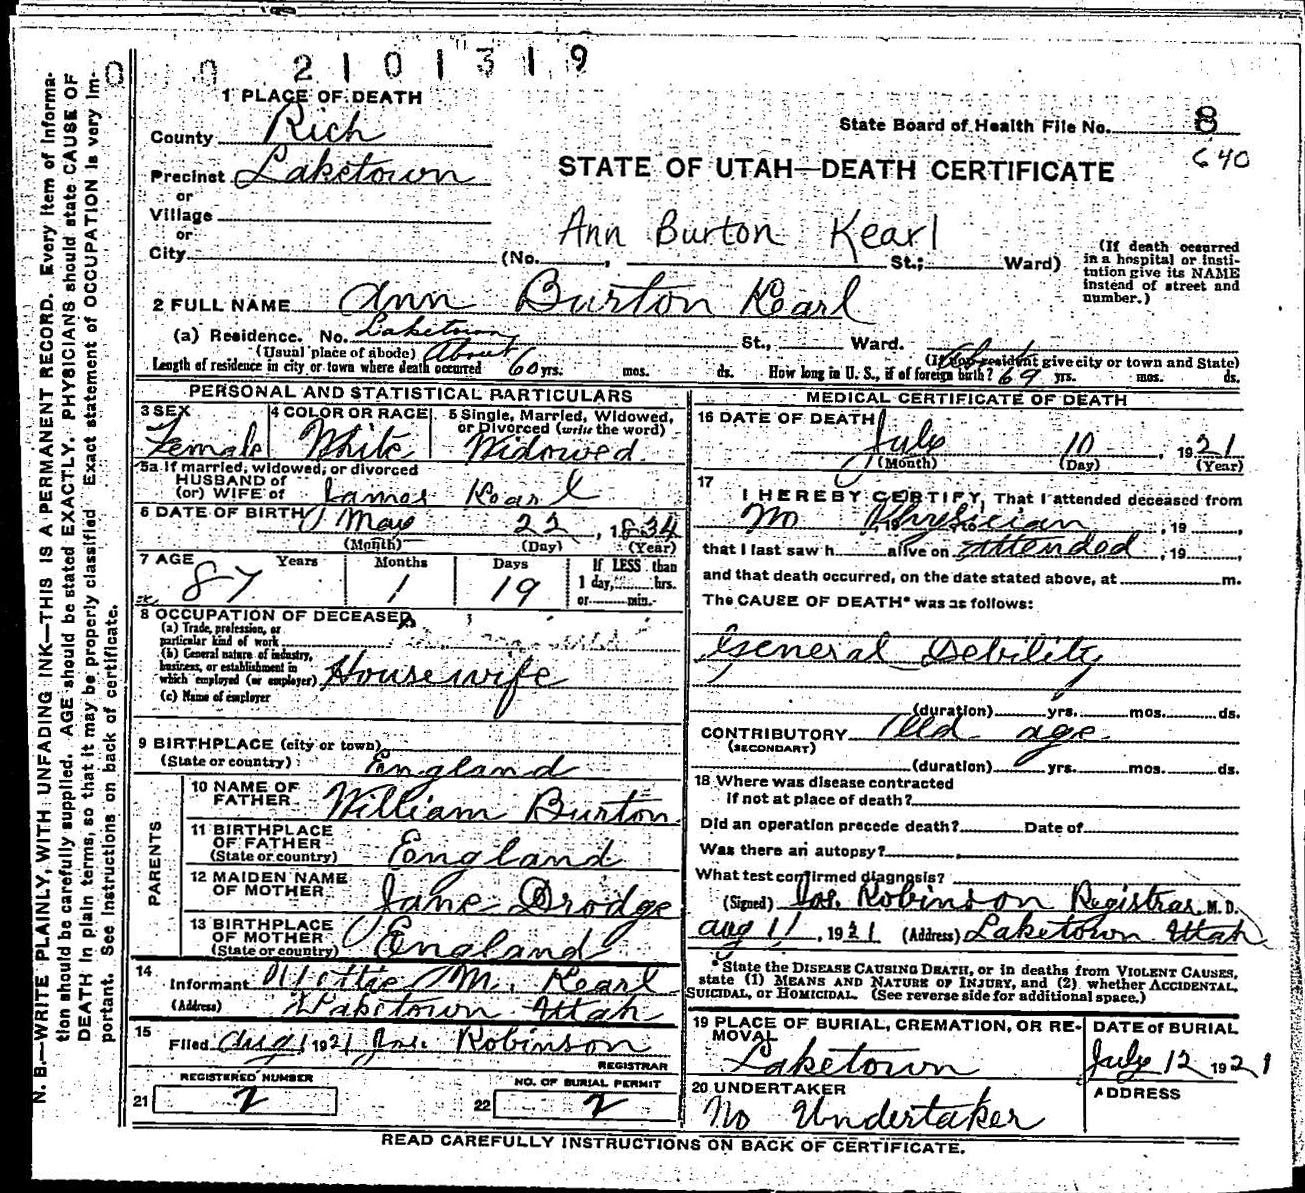 0 0 2 1 0 1 3 1 9
1 PLACE OF DEATH
County Rich
State Board of Health File No. 8
640
Precinct Laketown
or
STATE OF UTAH—DEATH CERTIFICATE
Village
or
Ann Burton Kearl
City (No. , St.; Ward)
(If death occurred
in a hospital or insti-
tution give its NAME
instead of street and
number.)
2 FULL NAME Ann Burton Kearl
(a) Residence. No. Laketown St., Ward.
(Usual place of abode) (If non-resident give city or town and State)
Length of residence in city or town where death occurred About 60 yrs. mos. ds. How long in U. S., if of foreign birth? 69 yrs. mos. ds.
PERSONAL AND STATISTICAL PARTICULARS
3 SEX
Female
4 COLOR OR RACE
White
5 Single, Married, Widowed,
or Divorced (write the word)
Widowed
5a If married, widowed, or divorced
HUSBAND of
(or) WIFE of James Kearl
6 DATE OF BIRTH May 22, 1834
(Month) (Day) (Year)
7 AGE Years Months Days If LESS than
1 day, hrs.
or min.
87 1 19
8 OCCUPATION OF DECEASED
(a) Trade, profession, or
particular kind of work
(b) General nature of industry,
business, or establishment in
which employed (or employer) Housewife
(c) Name of employer
9 BIRTHPLACE (city or town)
(State or country) England
PARENTS
10 NAME OF
FATHER William Burton
11 BIRTHPLACE
OF FATHER
(State or country) England
12 MAIDEN NAME
OF MOTHER Jane Drodge
13 BIRTHPLACE
OF MOTHER
(State or country) England
14
Informant Mottie M. Kearl
(Address) Laketown Utah
15
Filed Aug 1 1921 Jas. Robinson
REGISTRAR
REGISTERED NUMBER
21 2
NO. OF BURIAL PERMIT
22 2
MEDICAL CERTIFICATE OF DEATH
16 DATE OF DEATH
July 10, 1921
(Month) (Day) (Year)
17
I HEREBY CERTIFY, That I attended deceased from
No Physician, 19 ,
that I last saw h alive on attended, 19 ,
and that death occurred, on the date stated above, at m.
The CAUSE OF DEATH* was as follows:
General Debility
(duration) yrs. mos. ds.
CONTRIBUTORY Old age
(SECONDARY)
(duration) yrs. mos. ds.
18 Where was disease contracted
if not at place of death?
Did an operation precede death? Date of
Was there an autopsy?
What test confirmed diagnosis?
(Signed) Jas. Robinson Registrar M. D.
Aug 11, 1921 (Address) Laketown Utah
*State the DISEASE CAUSING DEATH, or in deaths from VIOLENT CAUSES,
state (1) MEANS AND NATURE OF INJURY, and (2) whether ACCIDENTAL,
SUICIDAL, or HOMICIDAL. (See reverse side for additional space.)
19 PLACE OF BURIAL, CREMATION, OR RE-
MOVAL
Laketown
DATE of BURIAL
July 12 1921
20 UNDERTAKER
No Undertaker
ADDRESS
READ CAREFULLY INSTRUCTIONS ON BACK OF CERTIFICATE.
N. B.—WRITE PLAINLY, WITH UNFADING INK—THIS IS A PERMANENT RECORD. Every item of informa-
tion should be carefully supplied. AGE should be stated EXACTLY. PHYSICIANS should state CAUSE OF
DEATH in plain terms, so that it may be properly classified. Exact statement of OCCUPATION is very im-
portant. See instructions on back of certificate.